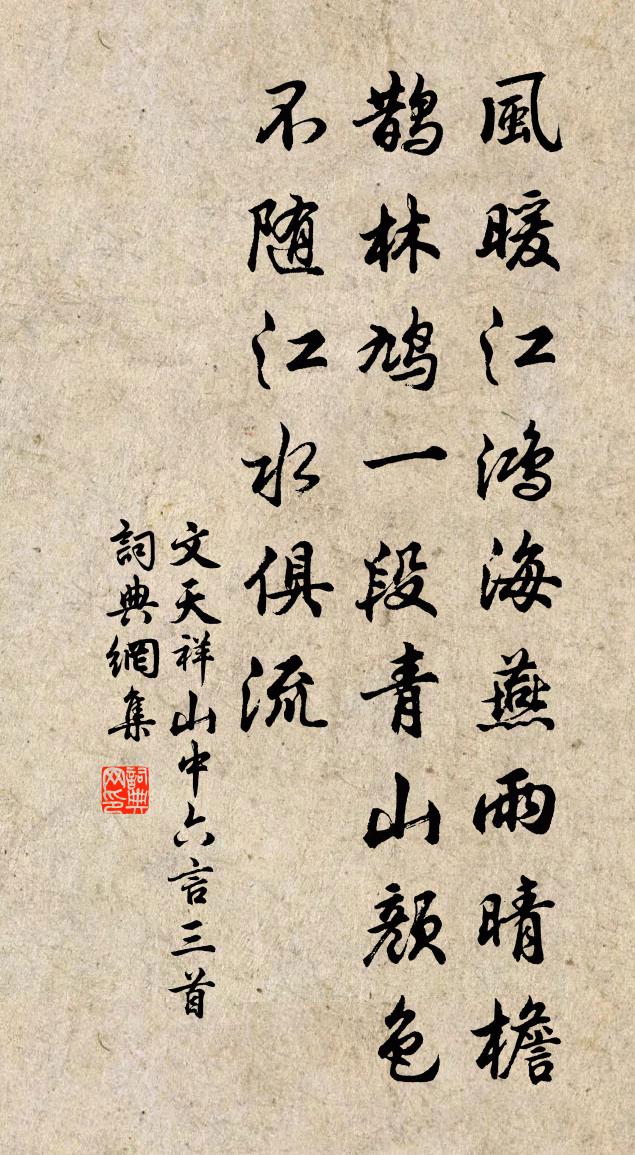 風暖江鴻海燕雨晴檐
鵲林鳩一段青山顏色
不随江水俱流
文天祥山中六言三首
詞典網集
詞典网印